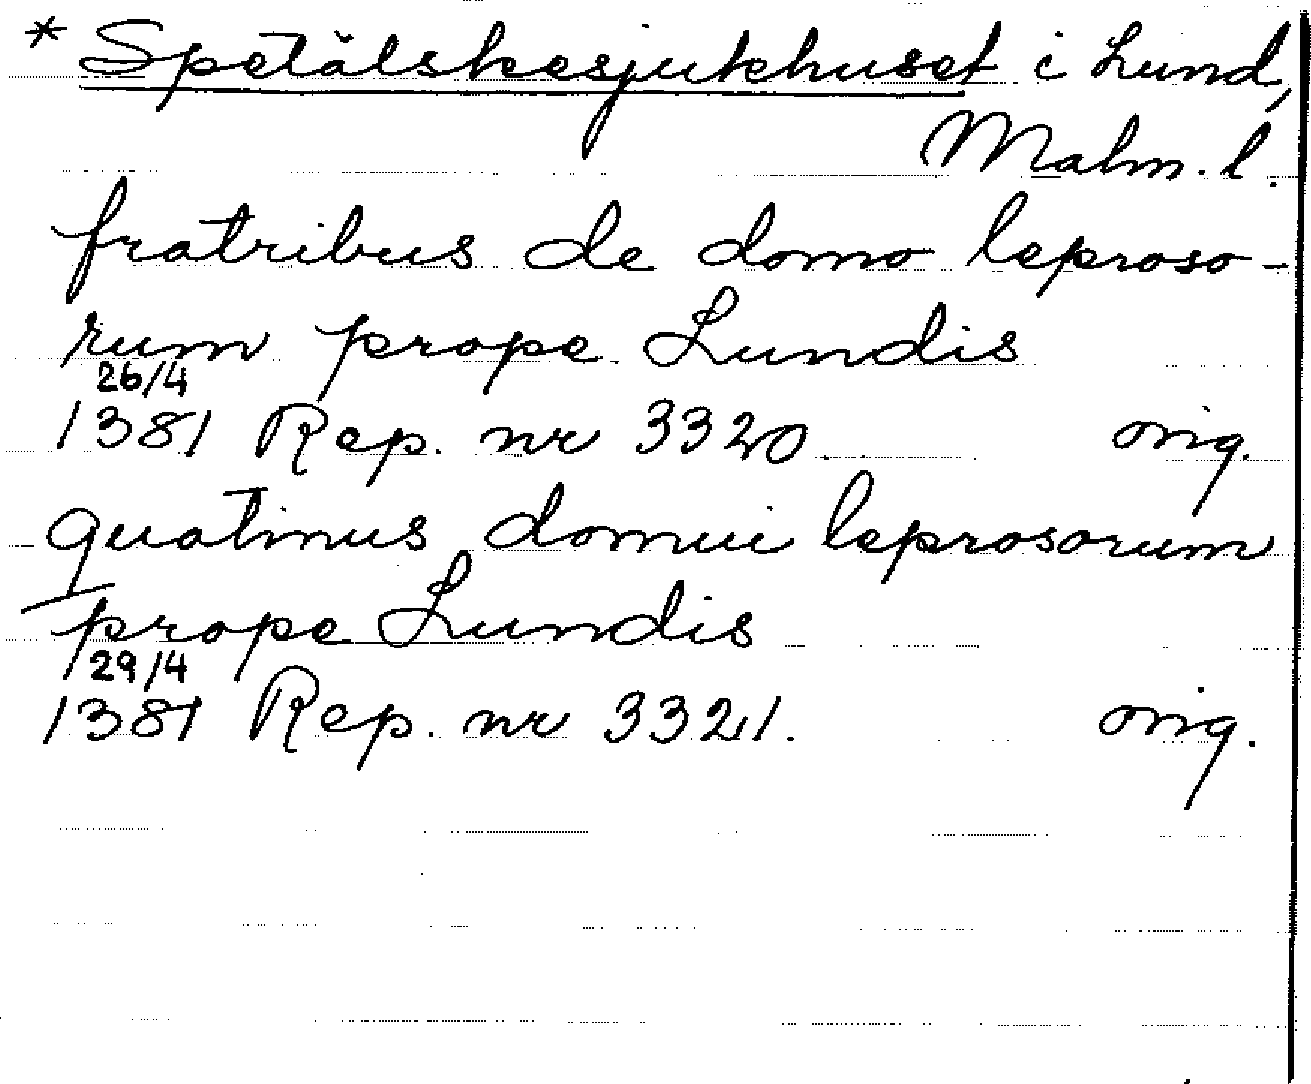 * Spetälskesjukhuset i Lund,
Malm. l.
fratribus de domo leproso-
rum prope Lundis
26/4
1381 Rep. nr 3320. orig.
quatinus domui leprosorum
prope Lundis
29/4
1381 Rep. nr 3321. orig.